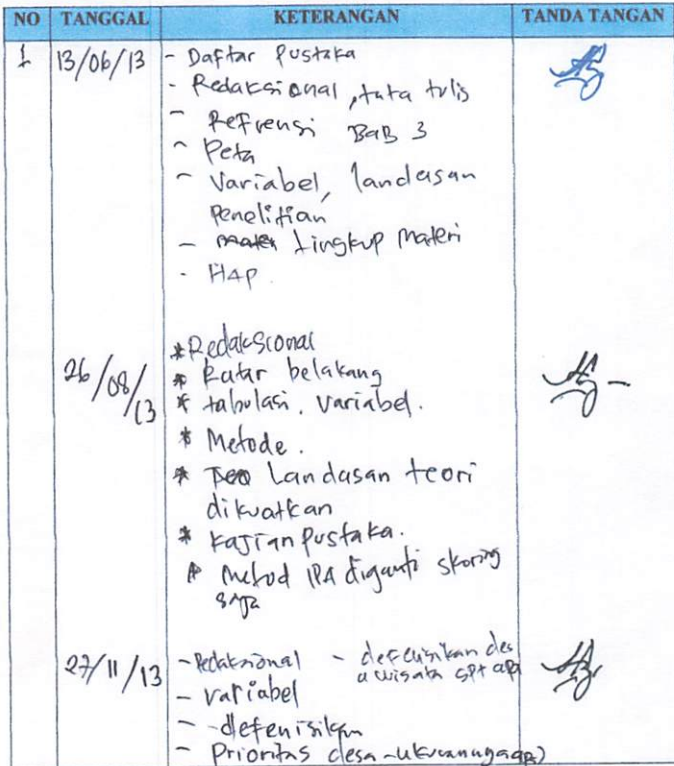 NO TANGGAL KETERANGAN TANDA TANGAN
1 13/06/13 - Daftar Pustaka
- Redaksional, tata tulis
- Refrensi BaB 3
- Peta
- Variabel, landasan
Penelitian
- Lingkup Materi
- HAP.
26/08/13 * Redaksional
* Latar belakang
* tabulasi. Variabel.
* Metode.
* Landasan teori
dikuatkan
* Kajian Pustaka.
* Metod IPA diganti skoring
saja
27/11/13 - Redaksional - defenisikan des
a wisata spt apa
- variabel
- -defenisikan
- Prioritas desa -ukurannya apa)